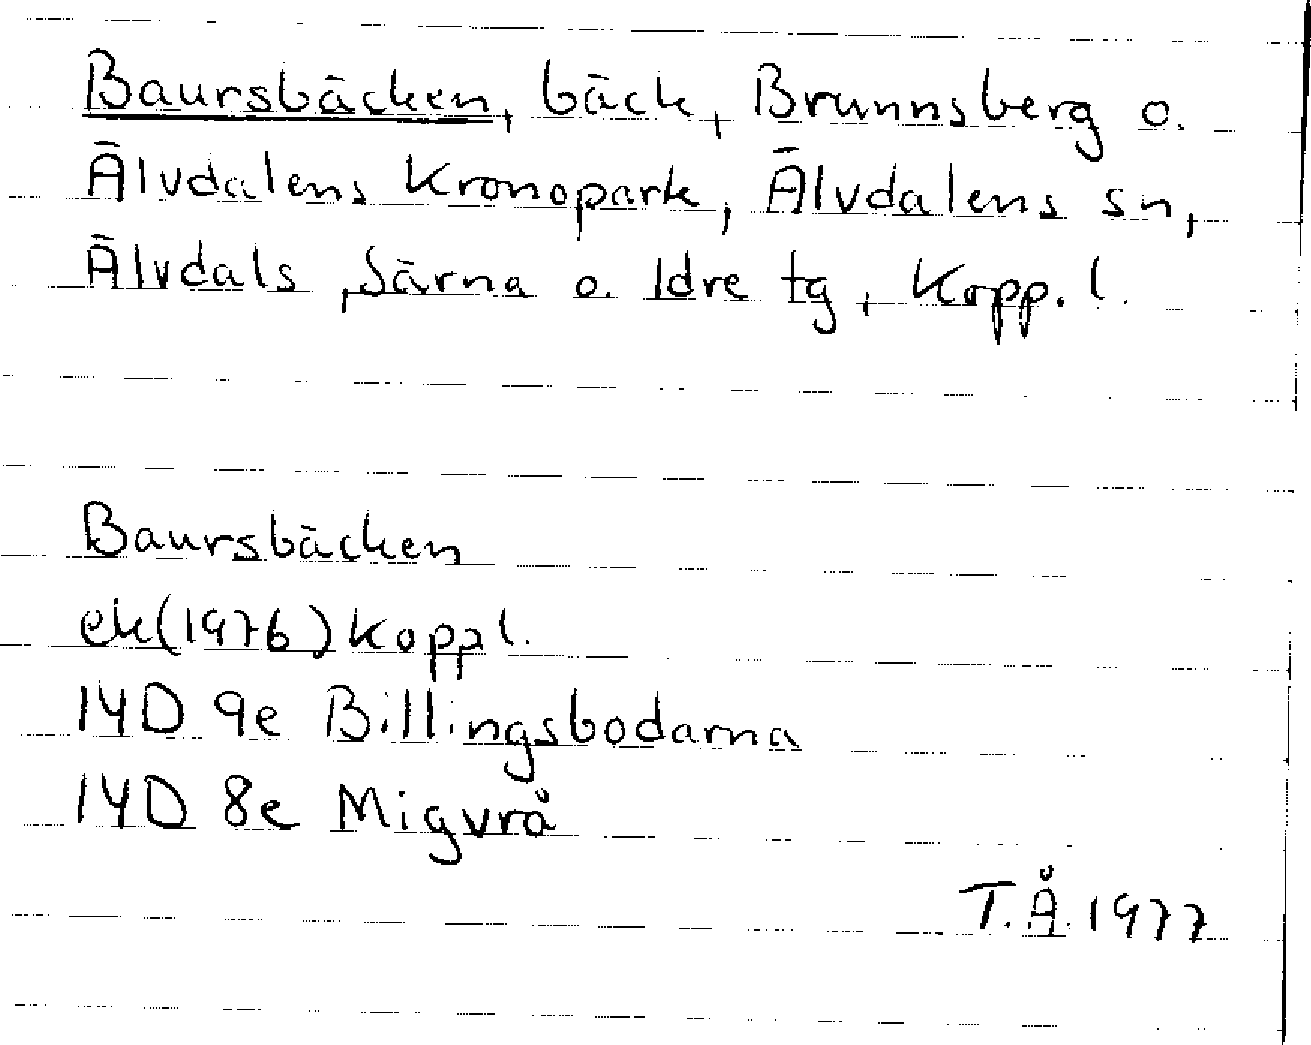 Baursbäcken, bäck, Brunnsberg o.
Älvdalens Kronopark, Älvdalens sn,
Älvdals, Särna o. Idre tg, Kopp. l.
Baursbäcken
ek(1976) Kopp l.
14D 9e Billingsbodarna
14D 8e Migvrå
T.Å. 1977